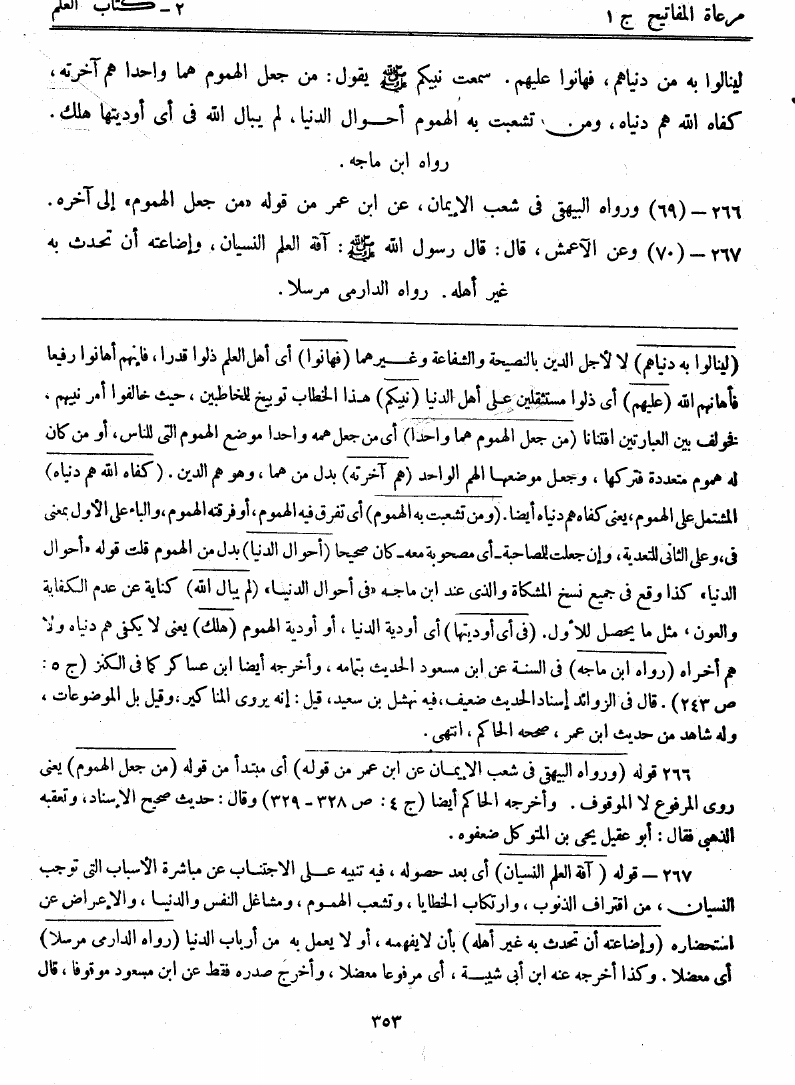 مرعاة المفاتيح ج ١
٢ – كتاب العلم
لينالوا به من دنياهم، فهانوا عليهم. سمعت نبيكم ﷺ يقول: من جعل الهموم هما واحدا هم آخرته،
كفاه الله هم دنياه، ومن تشعبت به الهموم أحوال الدنيا، لم يبال الله فى أى أوديتها هلك.
رواه ابن ماجه.
٢٦٦ – (٦٩) ورواه البيهقى فى شعب الإيمان، عن ابن عمر من قوله «من جعل الهموم» إلى آخره.
٢٦٧ – (٧٠) وعن الأعمش، قال: قال رسول الله ﷺ: آفة العلم النسيان، وإضاعته أن تحدث به
غير أهله. رواه الدارمى مرسلا.
(لينالوا به دنياهم) لا لأجل الدين بالنصيحة والشفاعة وغيرهما (فهانوا) أى أهل العلم ذلوا قدرا، فإنهم أهانوا رفيعا
فأهانهم الله (عليهم) أى ذلوا مستثقلين على أهل الدنيا (نبيكم) هذا الخطاب توبيخ للمخاطبين، حيث خالفوا أمر نبيهم،
نخولف بين العبارتين افتنانا (من جعل الهموم هما واحدا) أى من جعل همه واحدا موضع الهموم التى للناس، أو من كان
له هموم متعددة فتركها، وجعل موضعها الهم الواحد (هم آخرته) بدل من هما، وهو هم الدين. (كفاه الله هم دنياه)
المشتمل على الهموم، يعنى كفاه هم دنياه أيضا. (ومن تشعبت به الهموم) أى تفرق فيه الهموم، أو فرقته الهموم، والباء على الأول بمعنى
فى، وعلى الثانى للتعدية، وإن جعلت للصاحبة-أى مصحوبة معه-كان صحيحا (أحوال الدنيا) بدل من الهموم قلت قوله «أحوال
الدنيا» كذا وقع فى جميع نسخ المشكاة والذى عند ابن ماجه «فى أحوال الدنيا» (لم يبال الله) كناية عن عدم الكفاية
والعون، مثل ما يحصل للأول. (فى أى أوديتها) أى أودية الدنيا، أو أودية الهموم (هلك) يعنى لا يكفى هم دنياه ولا
هم أخراه (رواه ابن ماجه) فى السنة عن ابن مسعود الحديث بتمامه، وأخرجه أيضا ابن عساكر كما فى الكنز (ج ٥:
ص ٢٤٣). قال فى الزوائد إسناد الحديث ضعيف، فيه نهشل بن سعيد، قيل: إنه يروى المناكير، وقيل بل الموضوعات،
وله شاهد من حديث ابن عمر، صححه الحاكم، انتهى.
٢٦٦ قوله (ورواه البيهقى فى شعب الإيمان عن ابن عمر من قوله) أى مبتدأ من قوله (من جعل الهموم) يعنى
روى المرفوع لا الموقوف. وأخرجه الحاكم أيضا (ج ٤: ص ٣٢٨ – ٣٢٩) وقال: حديث صحيح الإسناد، وتعقبه
الذهبى فقال: أبو عقيل يحيى بن المتوكل ضعفوه.
٢٦٧ – قوله (آفة العلم النسيان) أى بعد حصوله، فيه تنيه على الاجتناب عن مباشرة الأسباب التى توجب
النسيان، من اقتراف الذنوب، وارتكاب الخطايا، وتشعب الهموم، ومشاغل النفس والدنيا، والإعراض عن
استحضاره (وإضاعته أن تحدث به غير أهله) بأن لا يفهمه، أو لا يعمل به من أرباب الدنيا (رواه الدارمى مرسلا)
أى معضلا. وكذا أخرجه عنه ابن أبى شيبة، أى مرفوعا معضلا، وأخرج صدره فقط عن ابن مسعود موقوفا، قال
٣٥٣